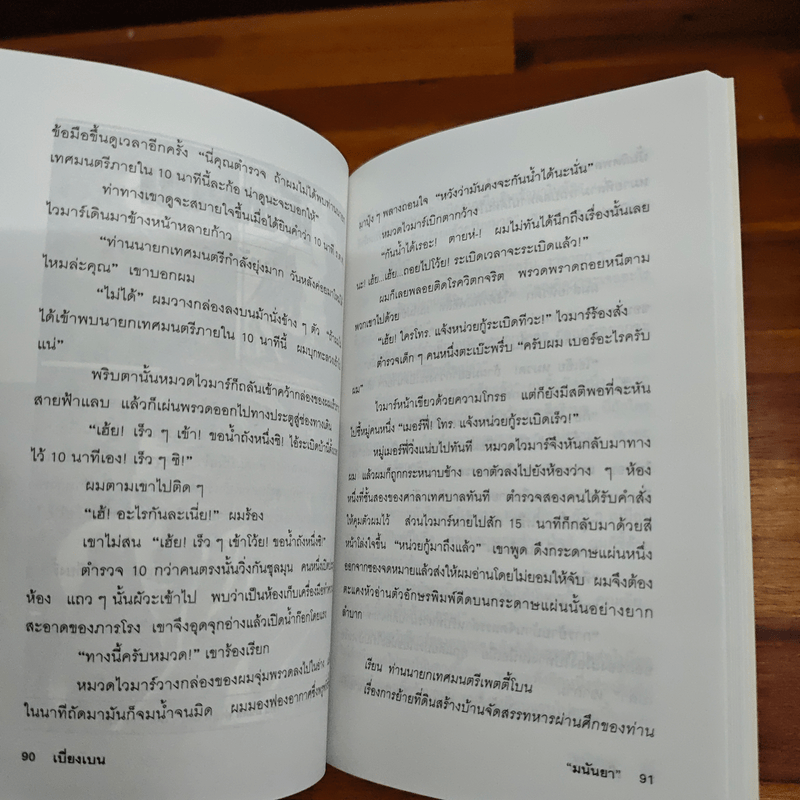 ข้อมือขึ้นดูเวลาอีกครั้ง “นี่คุณตำรวจ ถ้าผมไม่ได้พบท่านนายก
เทศมนตรีภายใน 10 นาทีนี้ละก้อ น่าดูนะจะบอกให้”
ท่าทางเขาดูจะสบายใจขึ้นเมื่อได้ยินคำว่า 10 นาที
ไวมาร์เดินมาข้างหน้าหลายก้าว
“ท่านนายกเทศมนตรีกำลังยุ่งมาก วันหลังค่อยมาใหม่ได้
ไหมล่ะคุณ” เขาบอกผม
“ไม่ได้” ผมวางกล่องลงบนม้านั่งข้าง ๆ ตัว
ได้เข้าพบนายกเทศมนตรีภายใน 10 นาทีนี้ ผมบุกทะลวง
แน่”
พริบตานั้นหมวดไวมาร์ก็ถลันเข้าคว้ากล่องของผม
สายฟ้าแลบ แล้วก็เผ่นพรวดออกไปทางประตูสู่ช่องทางเดิน
“เฮ้ย! เร็ว ๆ เข้า! ขอน้ำถังหนึ่งซิ! ไอ้ระเบิดบ้านี่
ไว้ 10 นาทีเอง! เร็ว ๆ ซิ!”
ผมตามเขาไปติด ๆ
“เฮ้! อะไรกันละเนี่ย!” ผมร้อง
เขาไม่สน “เฮ้ย! เร็ว ๆ เข้าโว้ย! ขอน้ำถังหนึ่งซิ!”
ตำรวจ 10 กว่าคนตรงนั้นวิ่งกันชุลมุน คนหนึ่ง
ห้อง แถว ๆ นั้นผัวะเข้าไป พบว่าเป็นห้องเก็บเครื่องมือ
สะอาดของภารโรง เขาจึงอุดจุกอ่างแล้วเปิดน้ำก๊อกโดยแรง
“ทางนี้ครับหมวด!” เขาร้องเรียก
หมวดไวมาร์วางกล่องของผมจุ่มพรวดลงไปในอ่าง
ในนาทีถัดมามันก็จมน้ำจนมิด ผมมองฟองอากาศซึ่งผุด
90 เบี่ยงเบน
มาปุ๋ง ๆ พลางถอนใจ “หวังว่ามันคงจะกันน้ำได้นะนั่น”
หมวดไวมาร์เบิกตากว้าง
“กันน้ำได้เรอะ! ตายห่-! ผมไม่ทันได้นึกถึงเรื่องนั้นเลย
นะ! เฮ้ย...เฮ้ย...ถอยไปโว้ย! ระเบิดเวลาจะระเบิดแล้ว!”
ผมก็เลยพลอยติดโรควิตกจริต พรวดพราดถอยหนีตาม
พวกเขาไปด้วย
“เฮ้ย! ใครโทร. แจ้งหน่วยกู้ระเบิดทีวะ!” ไวมาร์ร้องสั่ง
ตำรวจเด็ก ๆ คนหนึ่งตะเบ๊ะพรึ่บ “ครับผม เบอร์อะไรครับ
ผม”
ไวมาร์หน้าเขียวด้วยความโกรธ แต่ก็ยังมีสติพอที่จะหัน
ไปชี้หมู่คนหนึ่ง “เมอร์ฟี่! โทร. แจ้งหน่วยกู้ระเบิดเร็ว!”
หมู่เมอร์ฟี่วิ่งแน่บไปทันที หมวดไวมาร์จึงหันกลับมาทาง
ผม แล้วผมก็ถูกกระหนาบข้าง เอาตัวลงไปยังห้องว่าง ๆ ห้อง
หนึ่งที่ชั้นสองของศาลาเทศบาลทันที ตำรวจสองคนได้รับคำสั่ง
ให้คุมตัวผมไว้ ส่วนไวมาร์หายไปสัก 15 นาทีก็กลับมาด้วยสี
หน้าโล่งใจขึ้น “หน่วยกู้มาถึงแล้ว” เขาพูด ดึงกระดาษแผ่นหนึ่ง
ออกจากซองจดหมายแล้วส่งให้ผมอ่านโดยไม่ยอมให้จับ ผมจึงต้อง
ตะแคงหัวอ่านตัวอักษรพิมพ์ดีดบนกระดาษแผ่นนั้นอย่างยาก
ลำบาก
เรียน ท่านนายกเทศมนตรีเพตตี้โบน
เรื่องการย้ายที่ดินสร้างบ้านจัดสรรทหารผ่านศึกของท่าน
“มนันยา” 91